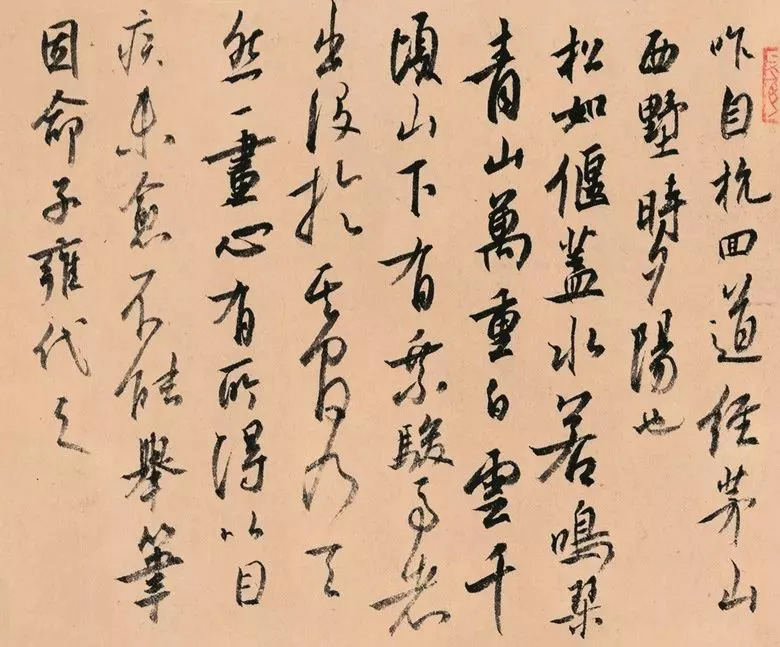 昨自杭回道經茅山
西墅時夕陽也
松如偃蓋水若鳴琴
青山萬重白雲千
頃山下有乘駿馬者
出没於其間乃天
然一畫心有所得以目
疾未愈不能舉筆
因命子雍代之